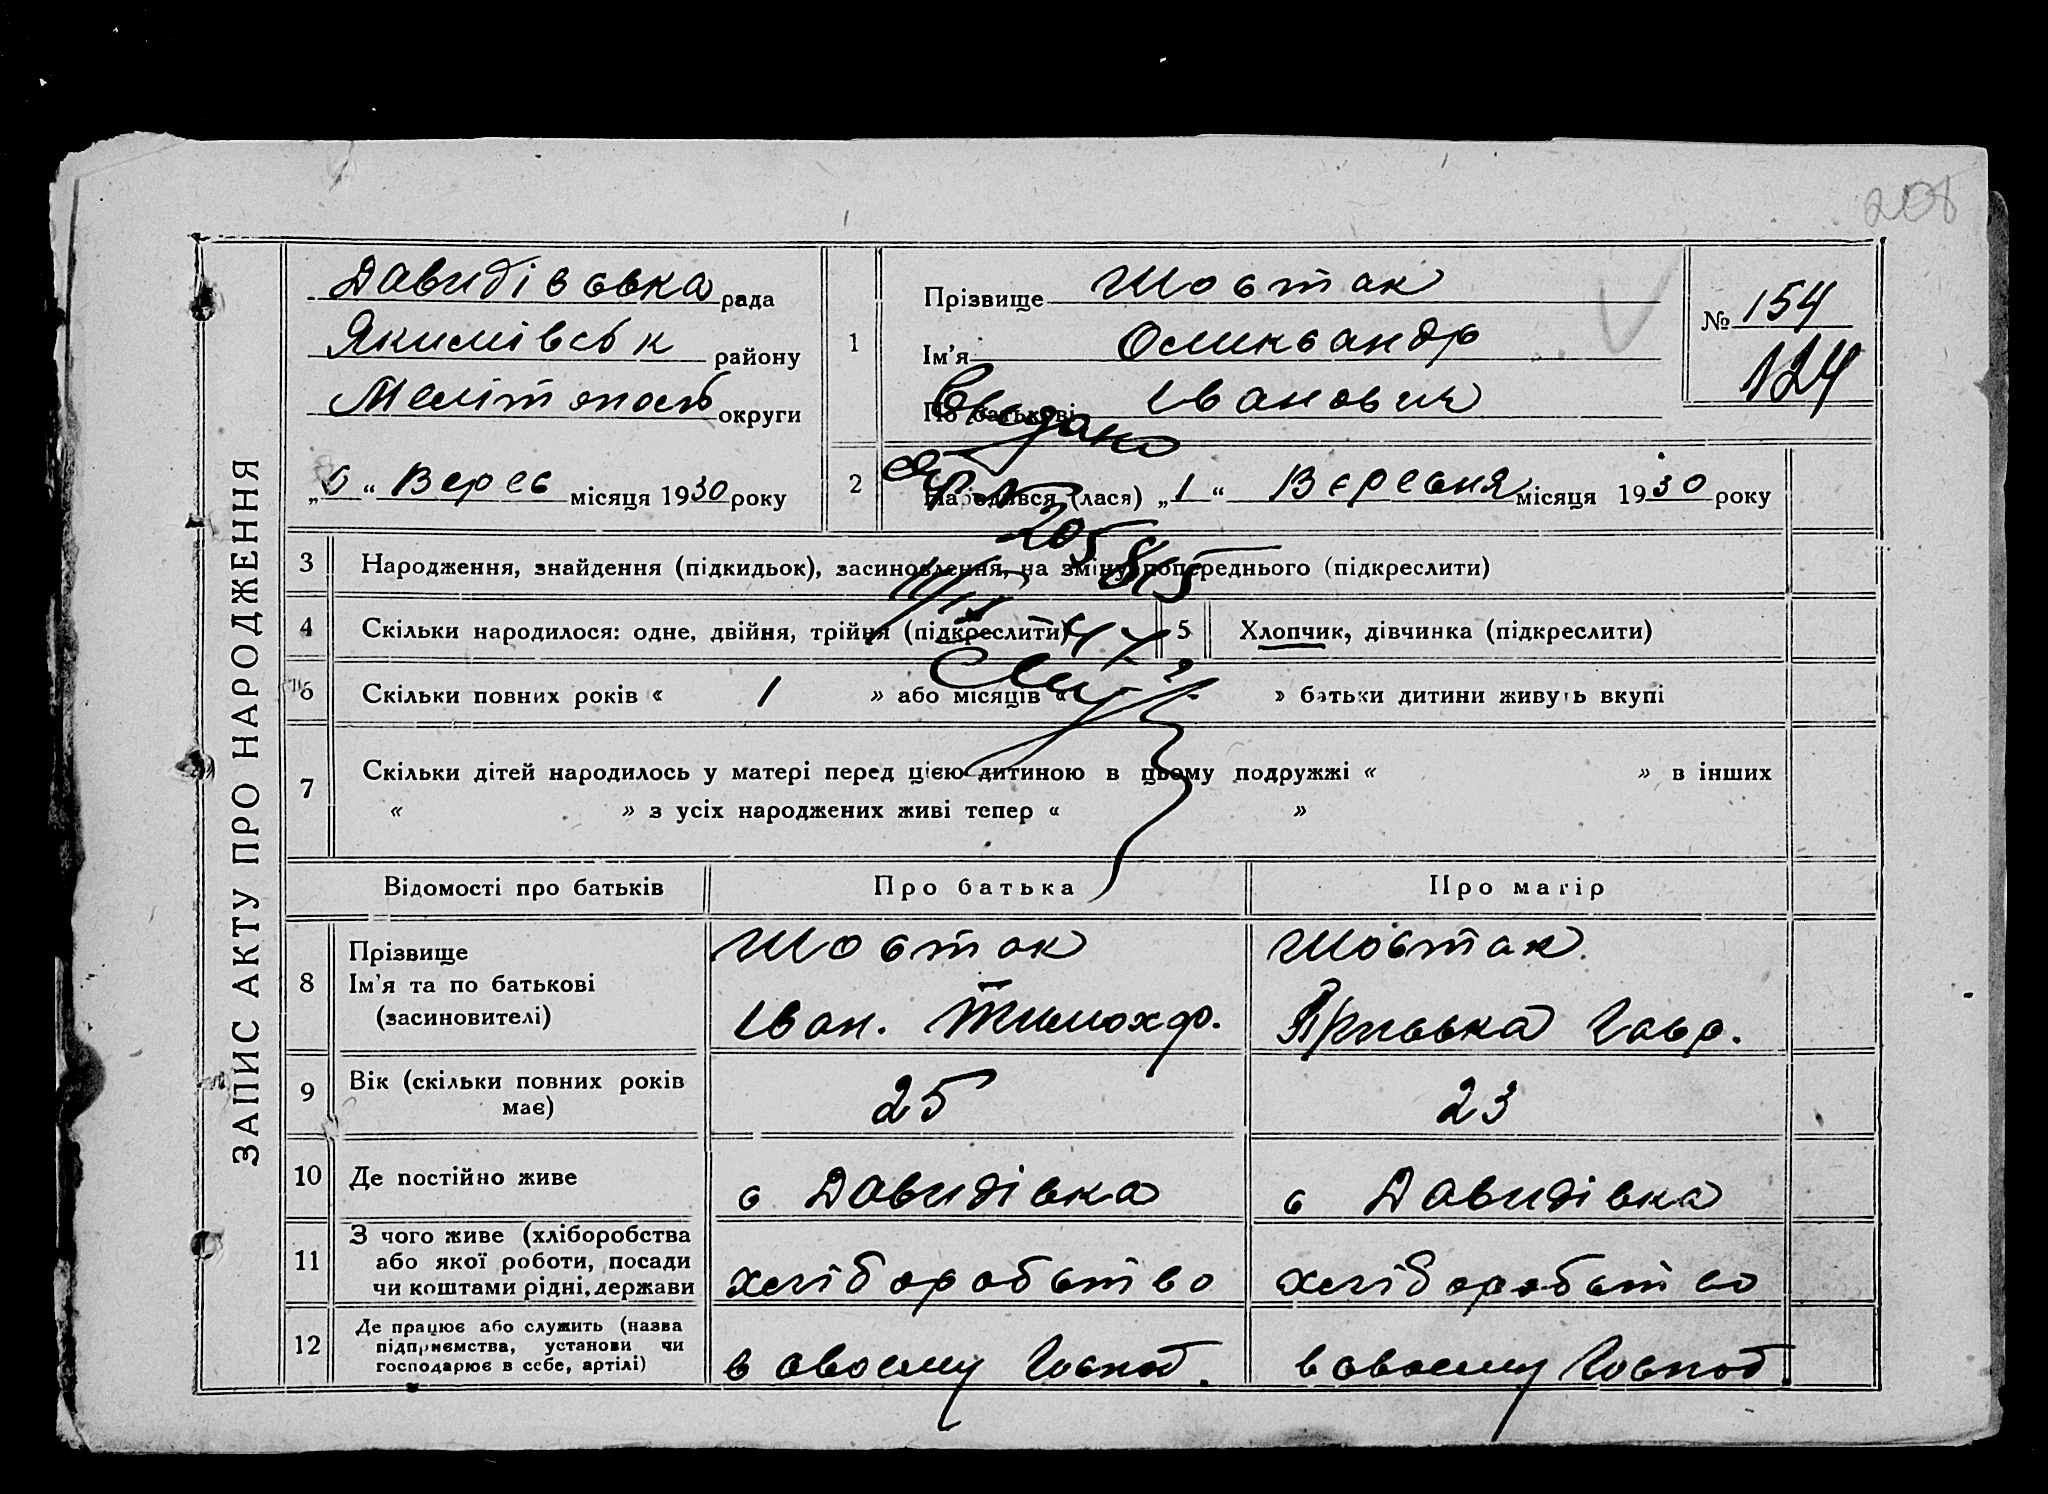 208
ЗАПИС АКТУ ПРО НАРОДЖЕННЯ
Давидівська рада
Якимівськ району
Меліт округи
„6“ Верес місяця 1930 року
1
Прізвище Шостак
Ім'я Олександр
По батькові Іванович
№ 154
124
2
Народився (лася) „1“ Вересня місяця 1930 року
Видано
205815
47
3 Народження, знайдення (підкидьок), засиновлення, на зміну попереднього (підкреслити)
4 Скільки народилося: одне, двійня, трійня (підкреслити)
5 Хлопчик, дівчинка (підкреслити)
6 Скільки повних років « 1 » або місяців « » батьки дитини живуть вкупі
7 Скільки дітей народилось у матері перед цією дитиною в цьому подружжі « » в інших
« » з усіх народжених живі тепер « »
Відомості про батьків Про батька Про матір
8 Прізвище
Ім'я та по батькові
(засиновителі)
Шостак
Іван. Тимохф.
Шостак
Гавр.
9 Вік (скільки повних років має) 25 23
10 Де постійно живе с Давидівка с Давидівка
11 З чого живе (хліборобства
або якої роботи, посади
чи коштами рідні, держави
хліборобство хліборобство
12 Де працює або служить (назва
підприємства, установи чи
господарює в себе, артілі)
в своєму Господ. в своєму Господ.